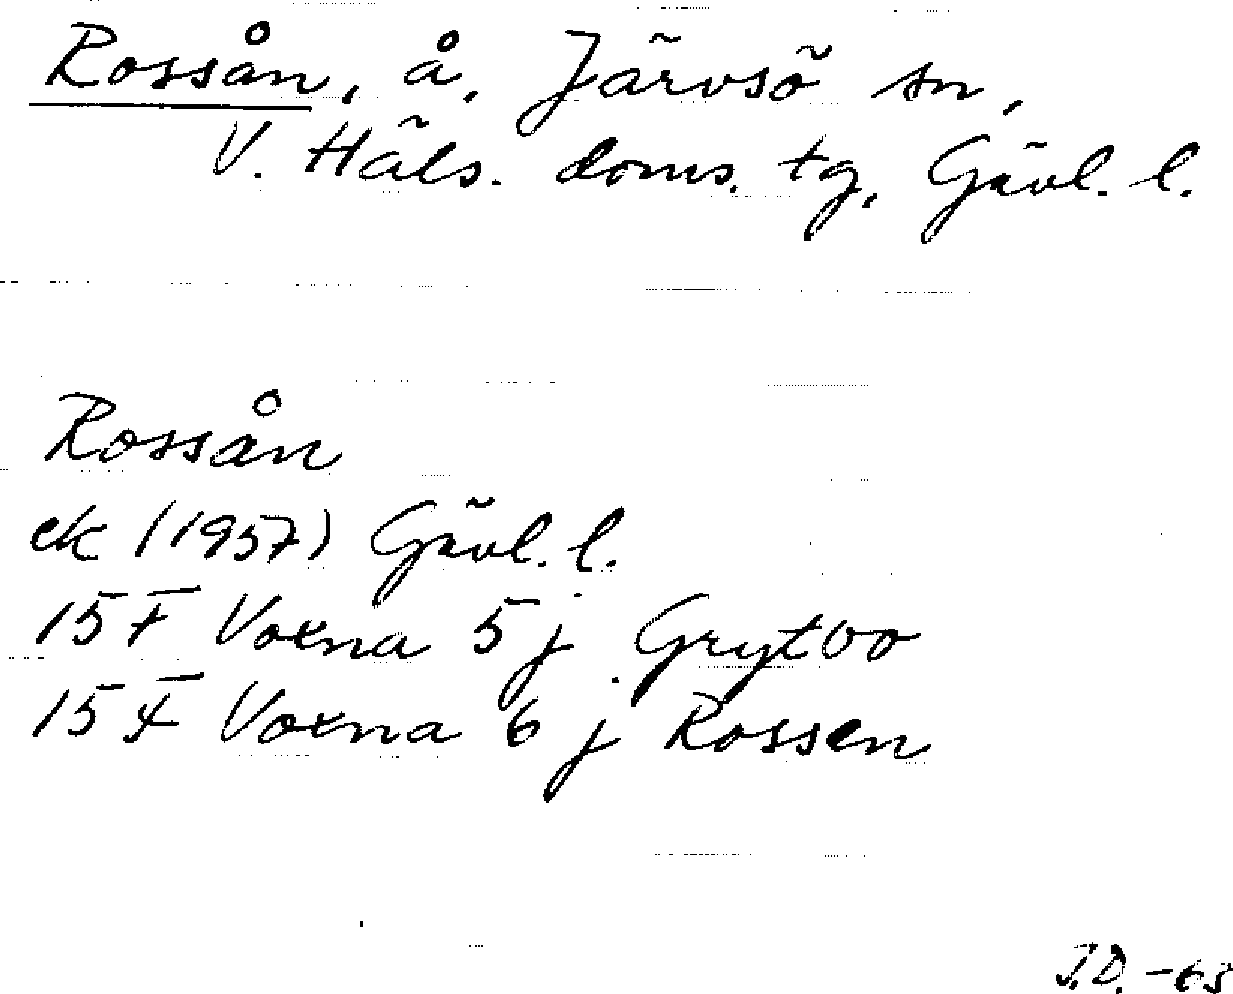 Rossån, å, Järvsö sn,
V. Häls. doms. tg, Gävl. l.
Rossån
ek (1957) Gävl. l.
15 F Voxna 5 j Grytbo
15 F Voxna 6 j Rossen
J.D. -63